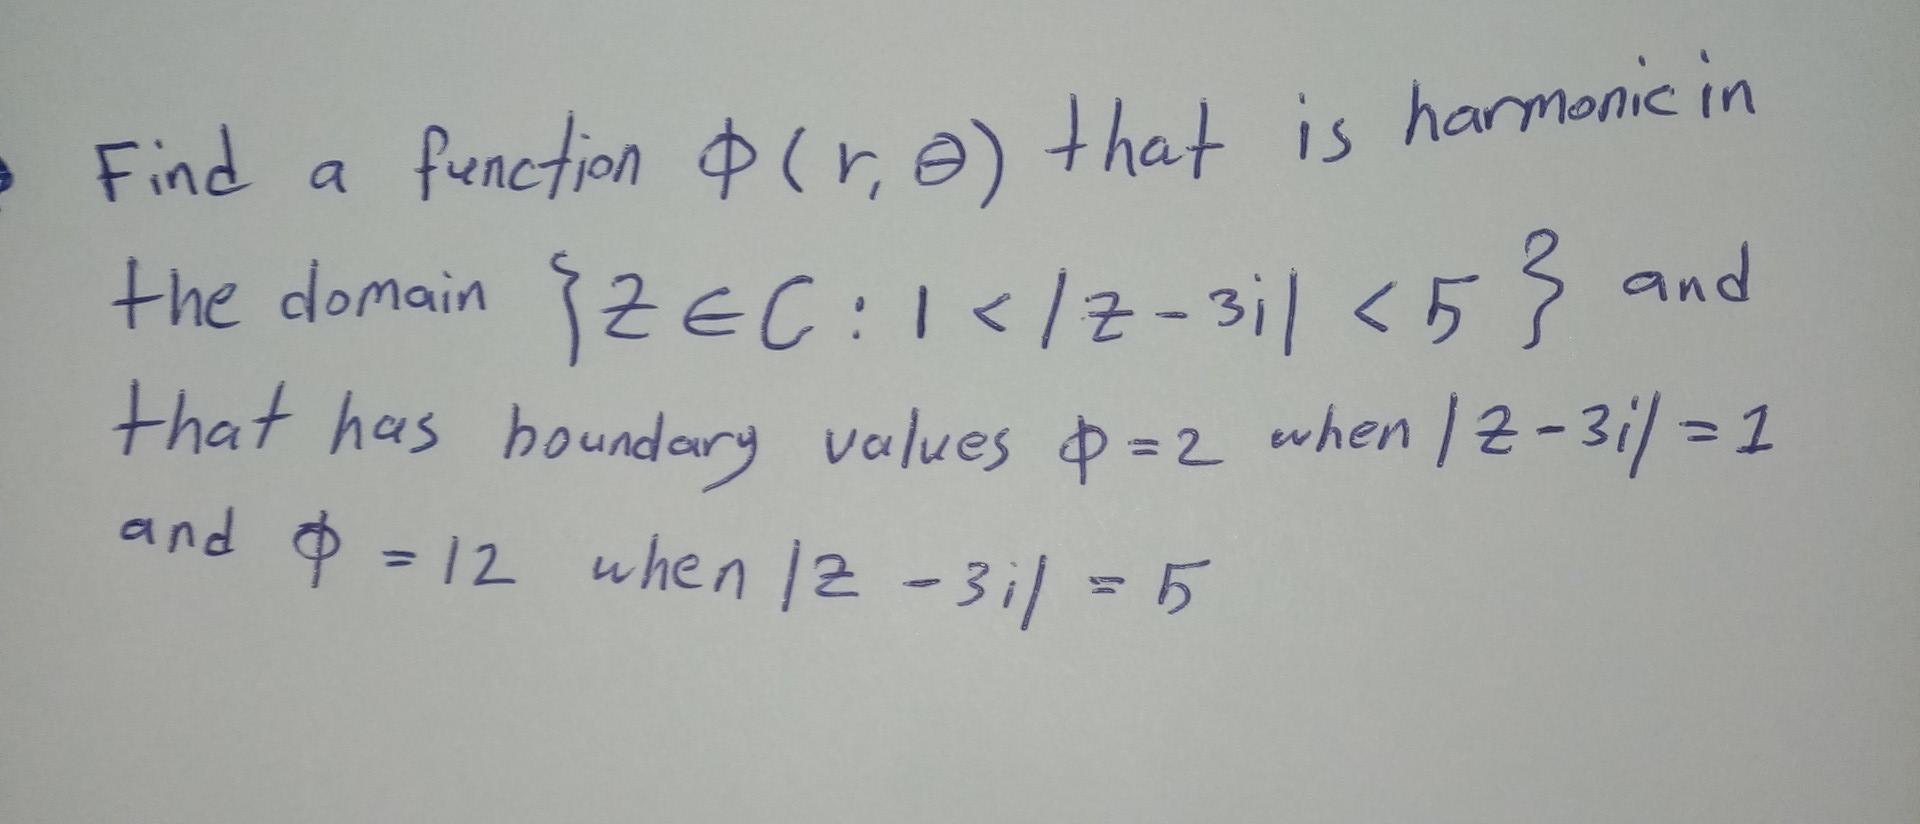 Find a function ϕ(r, θ) that is harmonic in
the domain {z ∈ C : 1 < |z - 3i| < 5} and
that has boundary values ϕ = 2 when |z - 3i| = 1
and ϕ = 12 when |z - 3i| = 5